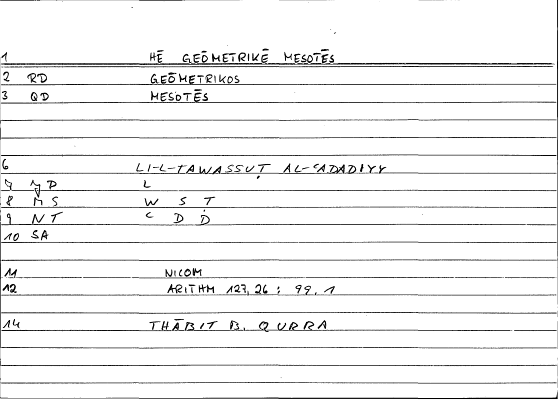 1 HĒ GEŌMETRIKĒ MESOTĒS
2 RD GEŌMETRIKOS
3 QD MESOTĒS
6 LI-L-TAWASSUṬ AL-ʿADADIYY
7 L
8 MS W S Ṭ
9 NT ʿ D D
10 SA
11 NICOM
12 ARITHM 127,26 : 99,1
14 THĀBIT B. QURRA